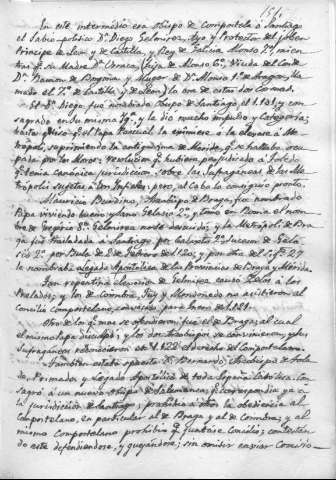 En este intermedio era Obispo de Compostela ó Santiago
el sabio politico Dn. Diego Gelmirez, Ayo y Protector del joven
Principe de Leon y de Castilla, y Rey de Galicia Alonso 7º mien-
tras qe. su Madre Dª Urraca, (hija de Alonso 6º, Viuda del Conde
Dn. Ramon de Borgoña y Muger de Dn. Alonso 1º de Aragon, lla-
mado el 7º de Castilla, y de Leon) lo era de estas dos Coronas.
El Dn. Diego fue nombrado Obispo de Santiago el 1.101, y con-
sagrado en su misma Ygª. y la dio mucho impulso y Categoria;
hasta qe. el Papa Pascual la eximiere ó la elevare á Me-
tropoli, suprimiendo la antiquisima de Merida, qe. se hallaba ocu-
pada por los Moros; resolucion qe. hubiera perjudicado á Toledo
qe. tenia canónica jurisdiccion sobre las sufraganeas de las Me-
tropolis sujetas á los Infieles: pero, al Cabo la consiguio pronto.
Mauricio Burdino, Arzobispo de Braga, fue nombrado
Papa viviendo bueno y sano Gelasio 2º, y tomo en Roma el nom-
bre de Gregorio 8º. Gelmirez no se descuidó, y la Metropoli de Bra-
ga fue trasladada á Santiago por Calisto 2º sucesor de Gela-
sio 2º por Bula de 2 de Febrero de 1120; y por otra del 27
le nombraba Legado Apostolico de las Provincias de Braga y Merida.
Tan repentina elevacion de Gelmirez causó zelos á los
Prelados; y los de Coimbra, Tuy y Mondoñedo no asistieron al
Concilio Compostelano, convocado para Enero de 1121.
Otro de los qe. mas se ofendieron, fue el de Braga, al cual
el mismo Papa disculpó; y los dos Arzobispos se convinieron, y los
Sufraganeos reconocieron el 1.122 al Prelado Compostelano.
Tambien estaba opuesto Dn. Bernardo, Arzobispo de Tole-
do, Primado, y Legado Apostolico de toda España Cristiana. Con-
sagró á un nuevo Obispo de Salamanca, qe. correspondia ya á
la jurisdiccion de Santiago; prohibia á otros la obediencia al
Compostelano, en particular al de Braga, y al de Coimbra; y al
mismo Compostelano prohibia qe. juntase Concilio; contestan-
do este defendiendose, y quejandose; sin omitir enviar Comisio-